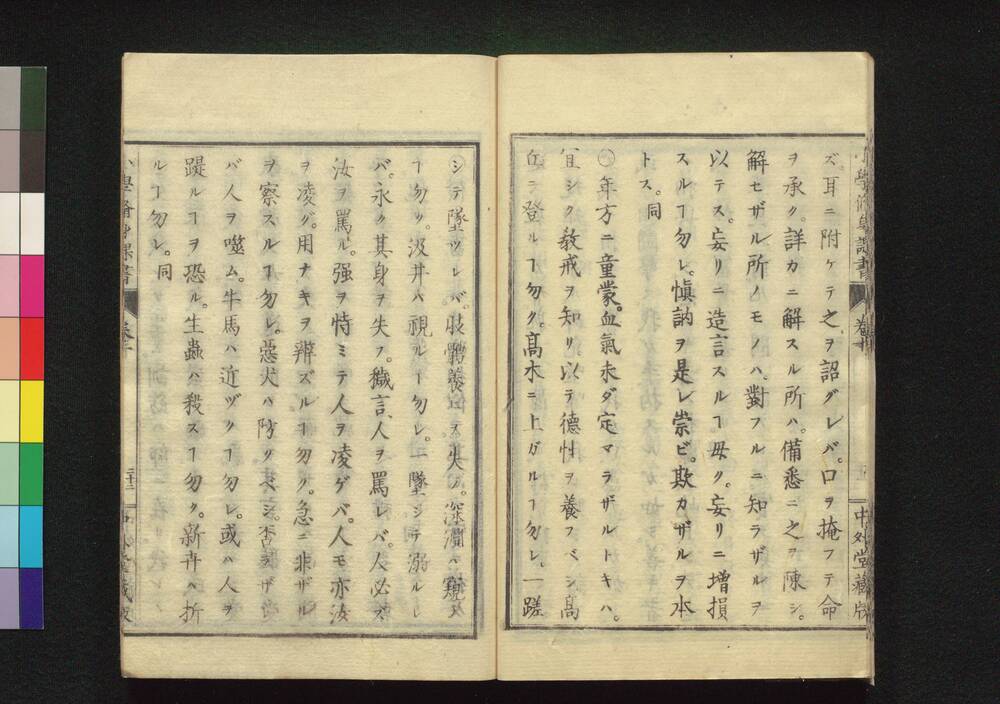 ズ。耳ニ附ケテ之ヲ詔グレバ。口ヲ掩フテ命
ヲ承ク。詳カニ解スル所ハ。備悉ニ之ヲ陳シ。
解セザル所ノモノハ。對フルニ知ラザルヲ
以テス。妄リニ造言スルヿ毋ク。妄リニ增損
スルヿ勿レ。愼訥ヲ是レ崇ビ。欺カザルヲ本
トス。同
年方ニ童蒙。血氣未ダ定マラザルトキハ。
宜シク敎戒ヲ知リ。以テ德性ヲ養フベシ。高
丘ニ登ルヿ勿ク。高木ニ上ガルヿ勿レ。一蹉
シテ墜ツレバ。肢體養ヲ失フ。深淵ハ窺フ
ヿ勿ク。汲井ハ視ルヿ勿レ。一墜シテ溺ルレ
バ。永ク其身ヲ失フ。穢言。人ヲ罵レバ。人必ズ
汝ヲ罵ル。强ヲ恃ミテ人ヲ凌ゲバ。人モ亦汝
ヲ凌グ。用ナキヲ辨ズルヿ勿ク。急ニ非ザル
ヲ察スルヿ勿レ。惡犬ハ防クベシ。否ラザレ
バ人ヲ噬ム。牛馬ハ近ヅクヿ勿レ。或ハ人ヲ
踶ルヿヲ恐ル。生蟲ハ殺スヿ勿ク。新卉ハ折
ルヿ勿レ。同
中外堂藏版
二十二